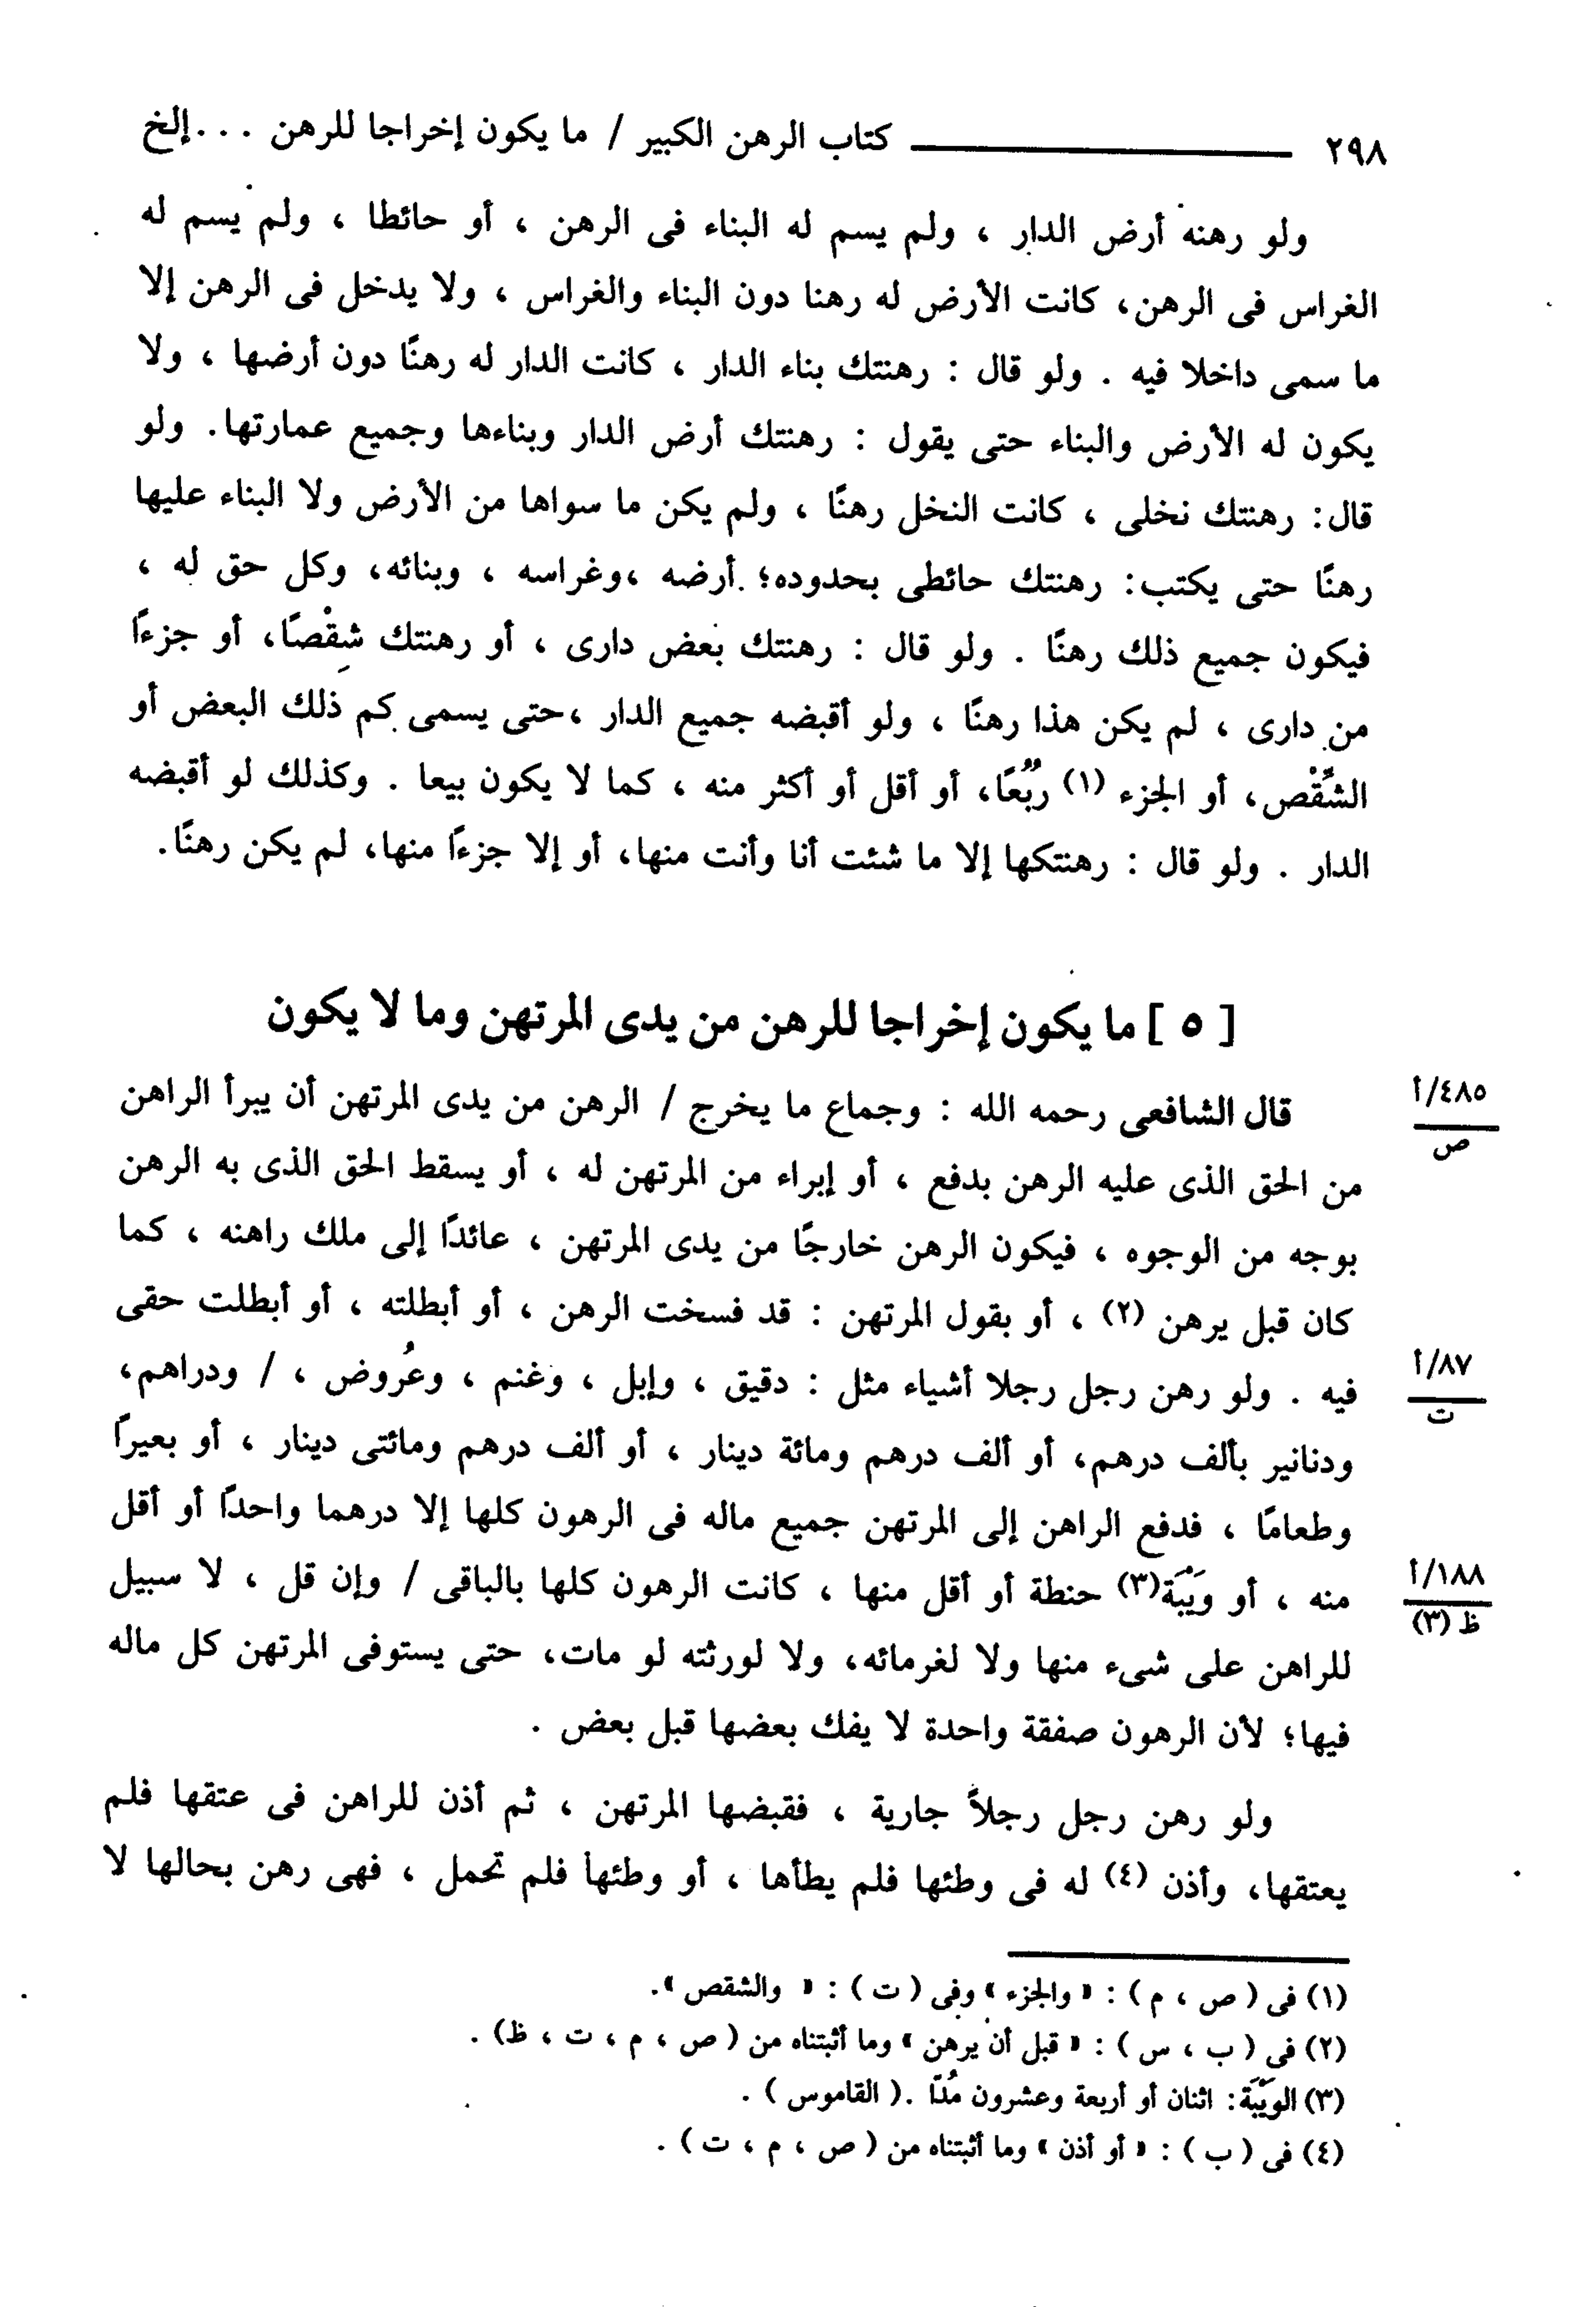 ٢٩٨ ـــــــ كتاب الرهن الكبير / ما يكون إخراجا للرهن . . . إلخ
ولو رهنه أرض الدار ، ولم يسم له البناء فى الرهن ، أو حائطا ، ولم يسم له
الغراس فى الرهن، كانت الأرض له رهنا دون البناء والغراس ، ولا يدخل فى الرهن إلا
ما سمى داخلا فيه . ولو قال : رهنتك بناء الدار ، كانت الدار له رهنًا دون أرضها ، ولا
يكون له الأرض والبناء حتى يقول : رهنتك أرض الدار وبناءها وجميع عمارتها. ولو
قال: رهنتك نخلى ، كانت النخل رهنًا ، ولم يكن ما سواها من الأرض ولا البناء عليها
رهنًا حتى يكتب: رهنتك حائطى بحدوده؛ أرضه ،وغراسه ، وبنائه، وكل حق له ،
فيكون جميع ذلك رهنًا . ولو قال : رهنتك بعض دارى ، أو رهنتك شِقْصًا، أو جزءًا
من دارى ، لم يكن هذا رهنًا ، ولو أقبضه جميع الدار ،حتى يسمى كم ذلك البعض أو
الشِّقْص، أو الجزء (١) رُبُعًا، أو أقل أو أكثر منه ، كما لا يكون بيعا . وكذلك لو أقبضه
الدار . ولو قال : رهنتكها إلا ما شئت أنا وأنت منها، أو إلا جزءًا منها، لم يكن رهنًا.
[ ٥ ] ما يكون إخراجا للرهن من يدى المرتهن وما لا يكون
قال الشافعى رحمه الله : وجماع ما يخرج / الرهن من يدى المرتهن أن يبرأ الراهن
٤٨٥/أ
ص
من الحق الذى عليه الرهن بدفع ، أو إبراء من المرتهن له ، أو يسقط الحق الذى به الرهن
بوجه من الوجوه ، فيكون الرهن خارجًا من يدى المرتهن ، عائدًا إلى ملك راهنه ، كما
كان قبل يرهن (٢) ، أو بقول المرتهن : قد فسخت الرهن ، أو أبطلته ، أو أبطلت حقى
فيه . ولو رهن رجل رجلا أشياء مثل : دقيق ، وإبل ، وغنم ، وعُروض ، / ودراهم،
٨٧/أ
ت
ودنانير بألف درهم، أو ألف درهم ومائة دينار ، أو ألف درهم ومائتى دينار ، أو بعيرًا
وطعامًا ، فدفع الراهن إلى المرتهن جميع ماله فى الرهون كلها إلا درهما واحدًا أو أقل
منه ، أو وَيْبَة(٣) حنطة أو أقل منها ، كانت الرهون كلها بالباقى / وإن قل ، لا سبيل
١٨٨/أ
ظ (٣)
للراهن على شىء منها ولا لغرمائه، ولا لورثته لو مات، حتى يستوفى المرتهن كل ماله
فيها؛ لأن الرهون صفقة واحدة لا يفك بعضها قبل بعض .
ولو رهن رجل رجلاً جارية ، فقبضها المرتهن ، ثم أذن للراهن فى عتقها فلم
يعتقها، وأذن (٤) له فى وطئها فلم يطأها ، أو وطئها فلم تحمل ، فهى رهن بحالها لا
(١) فى ( ص ، م ) : « والجزء » وفى ( ت ) : « والشقص ».
(٢) فى ( ب ، س ) : « قبل أن يرهن » وما أثبتناه من ( ص ، م ، ت ، ظ) .
(٣) الوَيْبَة: اثنان أو أربعة وعشرون مُدّا .( القاموس ) .
(٤) فى ( ب ) : « أو أذن » وما أثبتناه من ( ص ، م ، ت ) .